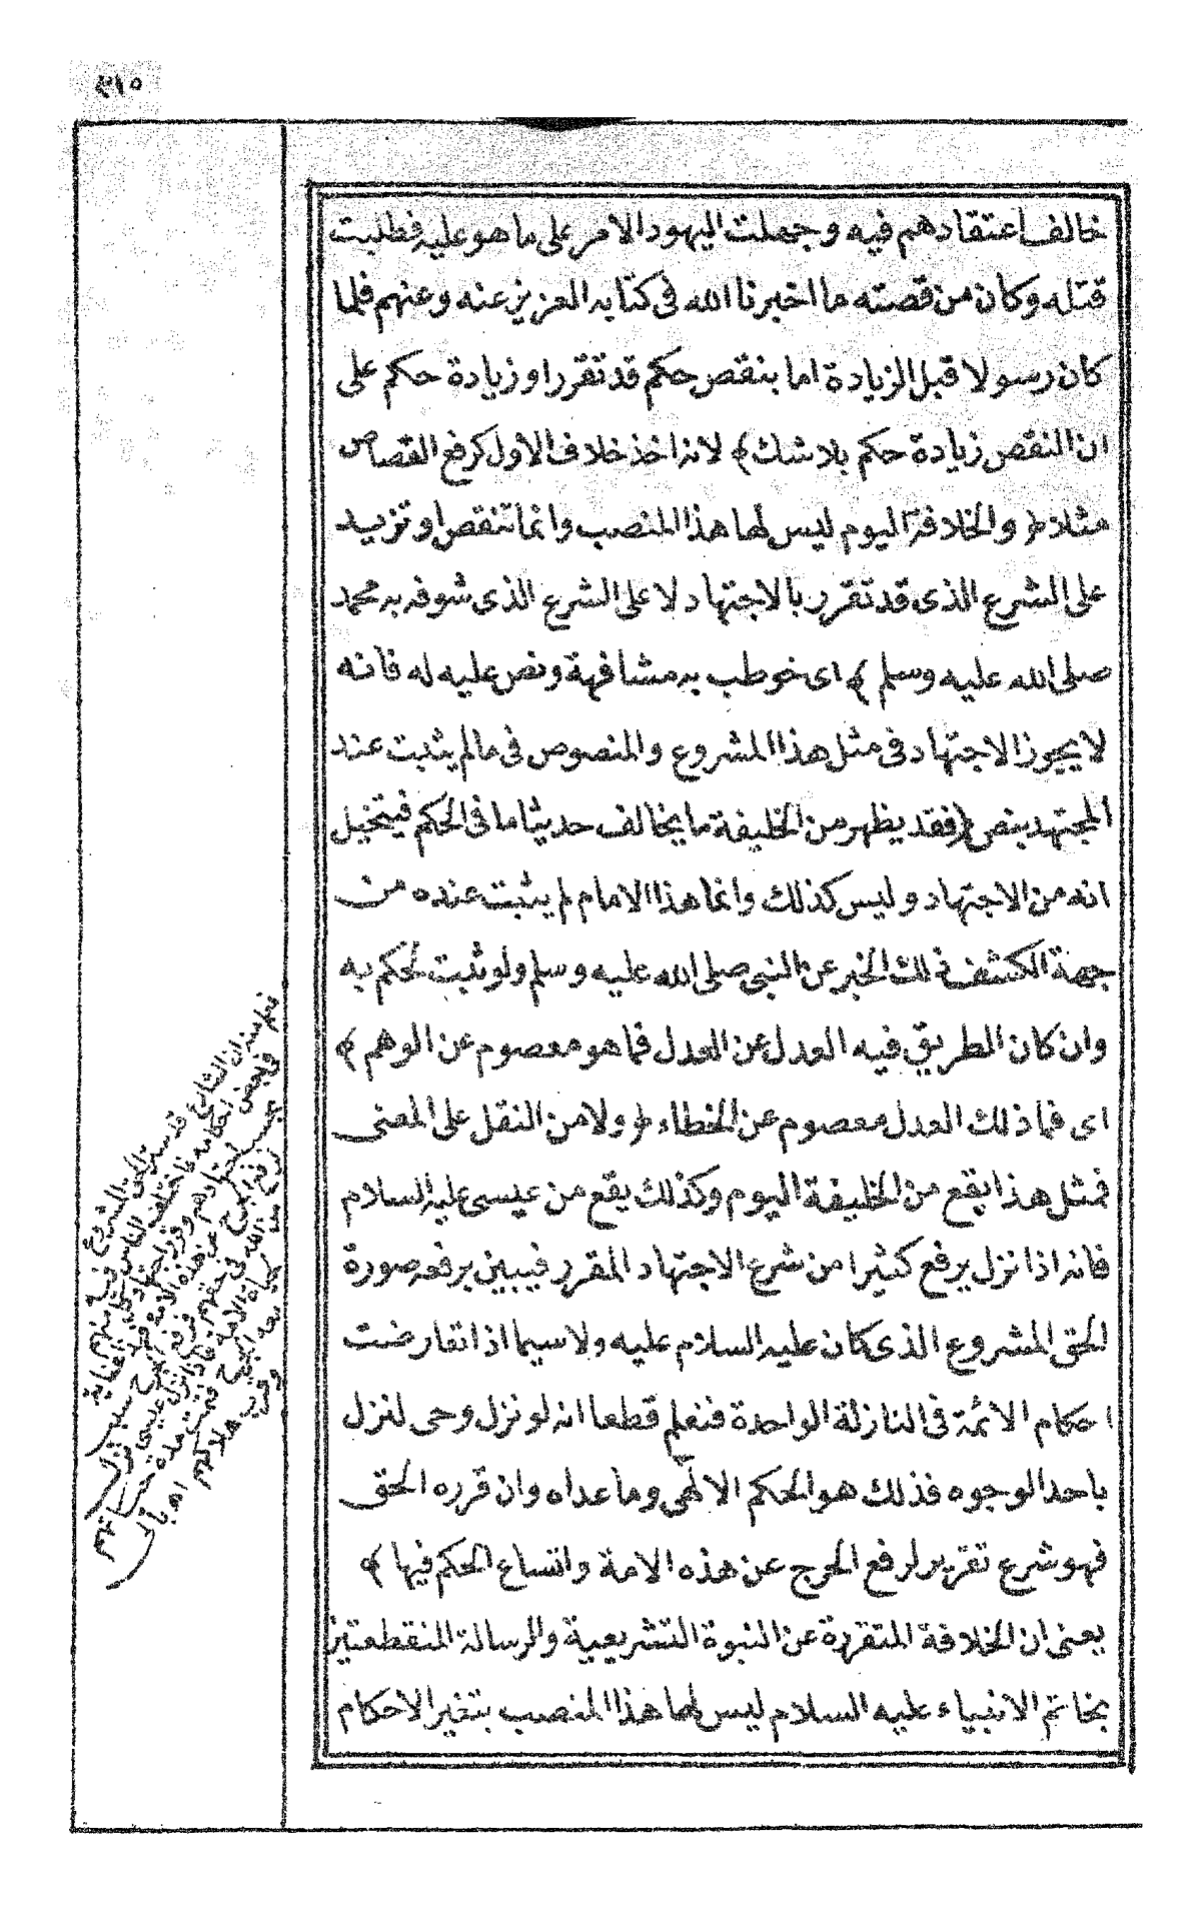 ٩١٥
خالف اعتقادهم فيه وجهلت اليهود الامر على ما هو عليه فطلبت
قتله وكان من قصته ما اخبرنا الله فى كتابه العزيز عنه وعنهم فلما
كان رسولا قبل الزيادة اما بنقص حكم قد تقرر او زيادة حكم على
ان النقص زيادة حكم بلا شك﴾ لانه اخذ خلاف الاول كرفع القصاص
مثلا ﴿والخلافة اليوم ليس لها هذا المنصب وانما تنقص او تزيد
على الشرع الذى قد تقرر بالاجتهاد لا على الشرع الذى شوفه به محمد
صلى الله عليه وسلم﴾ اى خوطب به مشافهة ونص عليه له فانه
لا يجوز الاجتهاد فى مثل هذا المشروع والمنصوص فى ما لم يثبت عند
المجتهد بنص ﴿فقد يظهر من الخليفة ما يخالف حديثا ما فى الحكم فيتخيل
انه من الاجتهاد وليس كذلك وانما هذا الامام لم يثبت عنده من
جهة الكشف ذلك الخبر عن النبى صلى الله عليه وسلم ولو ثبت لحكم به
وان كان الطريق فيه العدل عن العدل فما هو معصوم عن الوهم﴾
اى فما ذلك العدل معصوم عن الخطاء ﴿ولا من النقل على المعنى
فمثل هذا يقع من الخليفة اليوم وكذلك يقع من عيسى عليه السلام
فانه اذا نزل يرفع كثيرا من شرع الاجتهاد المقرر فيبين برفعه صورة
الحق المشروع الذى كان عليه السلام عليه ولا سيما اذا تعارضت
احكام الائمة فى النازلة الواحدة فنعلم قطعا انه لو نزل وحى لنزل
باحد الوجوه فذلك هو الحكم الالهى وما عداه وان قرره الحق
فهو شرع تقرير لرفع الحرج عن هذه الامة واتساع الحكم فيها﴾
يعنى ان الخلافة المتقررة عن النبوة التشريعية والرسالة المنقطعتين
بخاتم الانبياء عليه السلام ليس لها هذا المنصب بتغير الاحكام
نعلم منه ان الشارع قد ستر الحق المشروع فيه